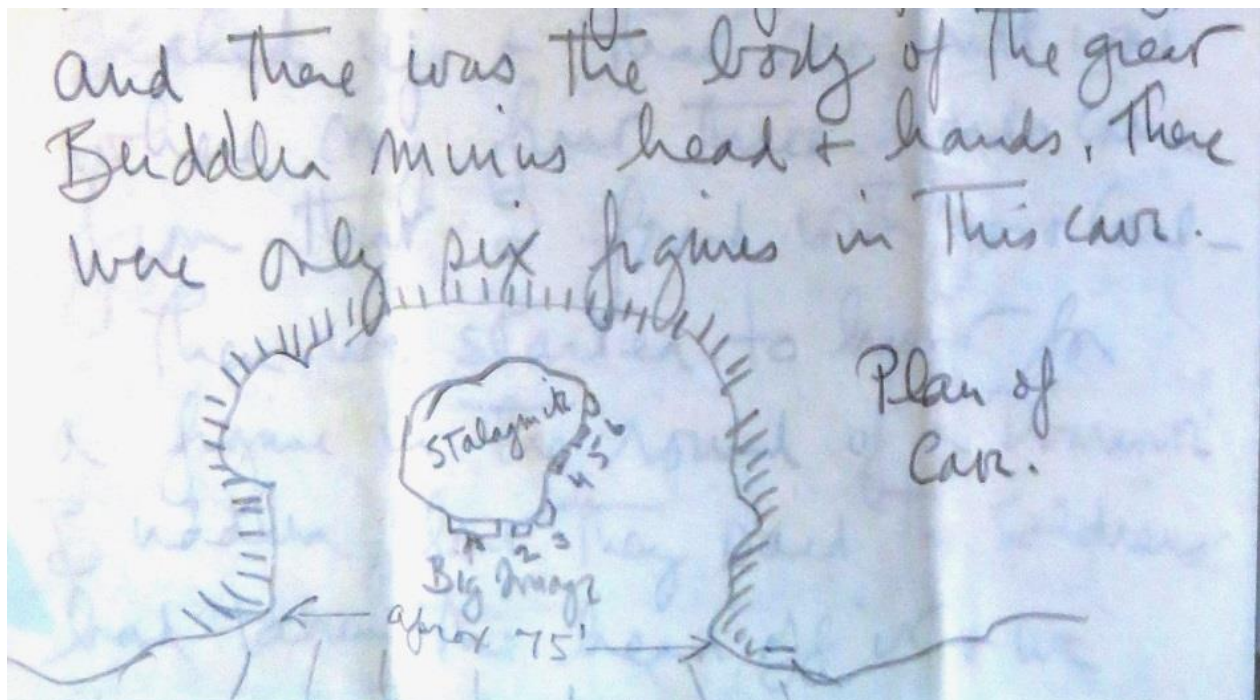 and there was the body of the great
Buddha minus head + hands, There
were only six figures in This cave.
Plan of
Cave.
Stalagmite
6
5
4
1 2 3
Big Image
aprox 75'